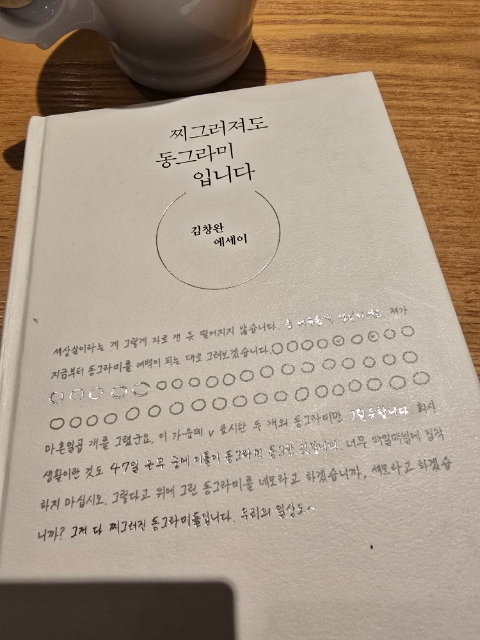 찌그러져도
동그라미
입니다
김창완
에세이
세상살이라는 게 그렇게 자로 잰 듯 떨어지지 않습니다. 좀 제가
지금부터 동그라미를 여백이 되는 대로 그려보겠습니다.
마흔일곱 개를 그렸군요. 이 가운데 v 표시한 두 개의 동그라미만 그럴듯합니다. 회사
생활이란 것도 47일 근무 중에 이틀이 동그라미 너무 매일매일에 집착
하지 마십시오. 그렇다고 위에 그린 동그라미를 네모라고 하겠습니까, 세모라고 하겠습
니까? 그저 다 찌그러진 동그라미들입니다. 우리의 일상도…